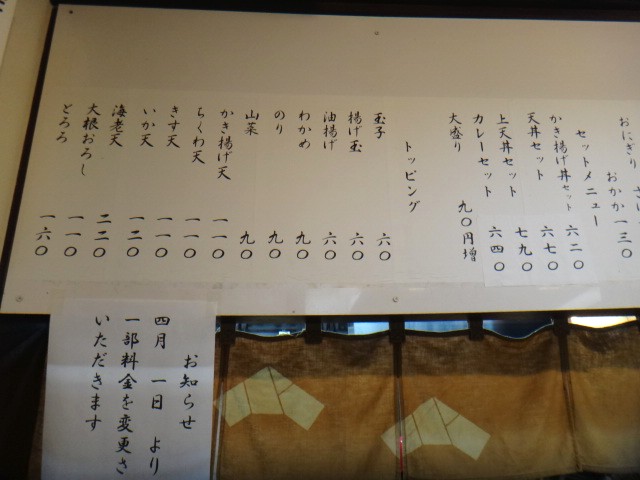 おにぎり
おかか 一三〇
セットメニュー
かき揚げ丼セット 六二〇
天丼セット 六七〇
上天丼セット 七九〇
カレーセット 六四〇
大盛り 九〇円増
トッピング
玉子 六〇
揚げ玉 六〇
油揚げ 六〇
わかめ 九〇
のり 九〇
山菜 九〇
かき揚げ天 一一〇
ちくわ天 一一〇
きす天 一一〇
いか天 一二〇
海老天 二二〇
大根おろし 一一〇
とろろ 一六〇
お知らせ
四月 一日 より
一部料金を変更さ
いただきます